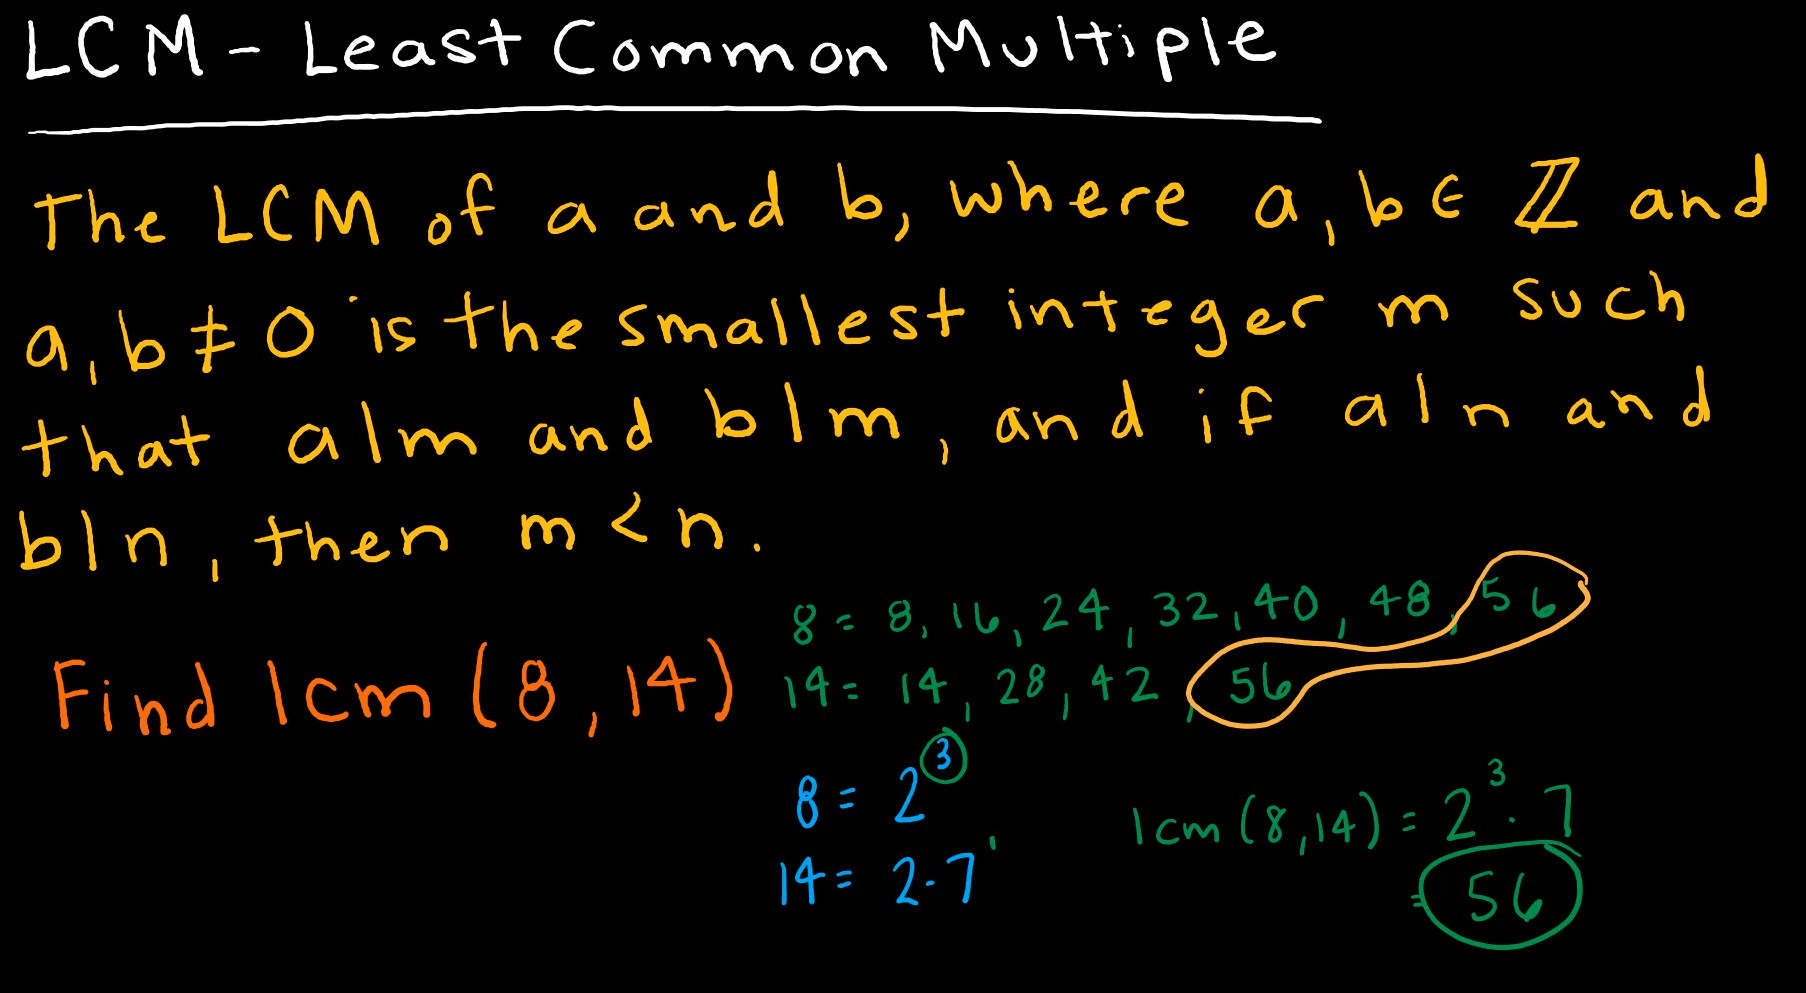 LCM - Least Common Multiple
The LCM of a and b, where a, b ∈ ℤ and
a, b ≠ 0 is the smallest integer m such
that a|m and b|m, and if a|n and
b|n, then m < n.
8 = 8, 16, 24, 32, 40, 48, 56
Find lcm (8, 14)
14 = 14, 28, 42, 56
8 = 2³
lcm (8, 14) = 2³ · 7
14 = 2 · 7¹
= 56